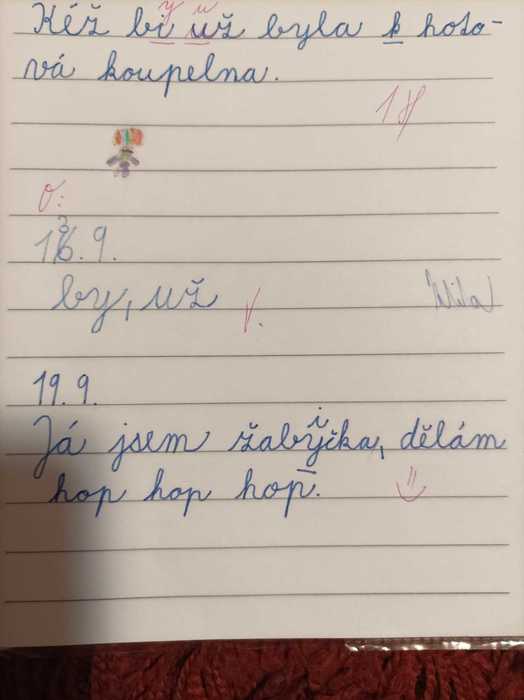 Kéž bi už byla k hoto-
vá koupelna.
1
O:
13.9.
by, už
Míla
19.9.
Já jsem žabička, dělám
hop hop hop.